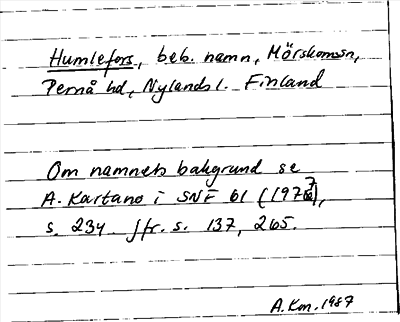 Humlefors, beb. namn, Mörskomssn,
Pernå hd, Nylands l. Finland
Om namnets bakgrund se
A. Kartano i SNF 61 (1977),
s. 234. Jfr. s. 137, 265.
A.Km. 1987